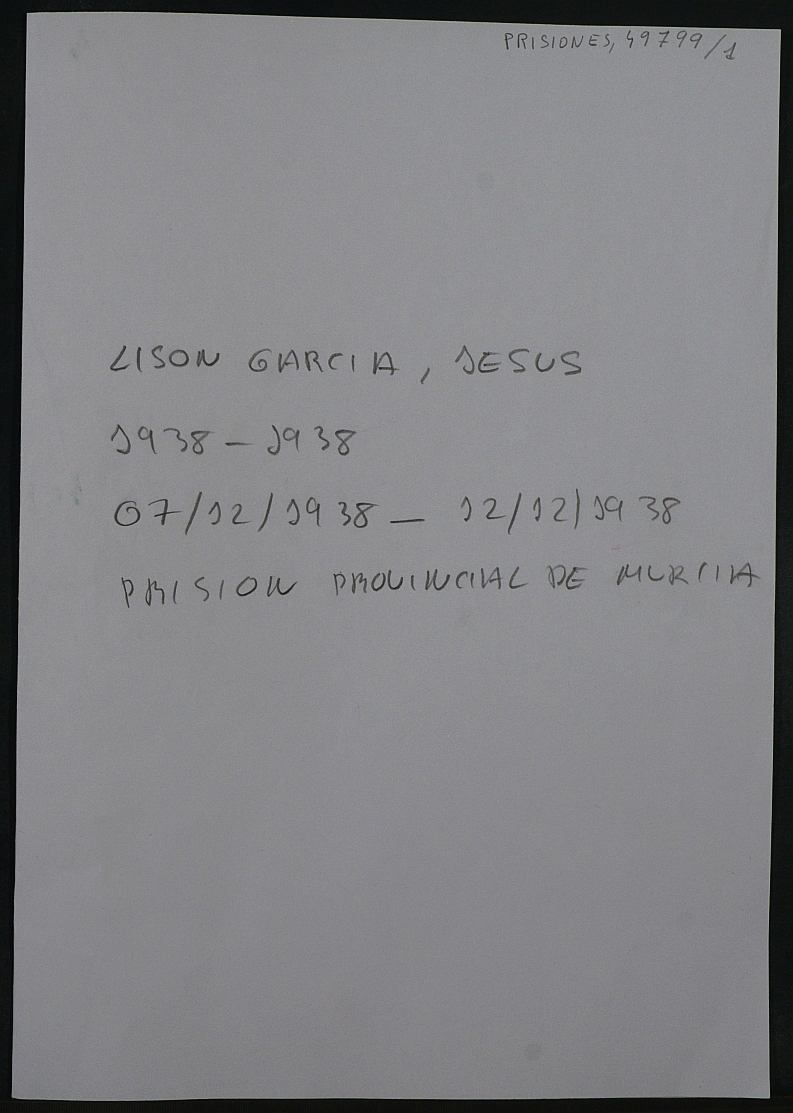 PRISIONES, 49799/1
LISON GARCIA, JESUS
1938 - 1938
07/12/1938 - 12/12/1938
PRISION PROVINCIAL DE MURCIA